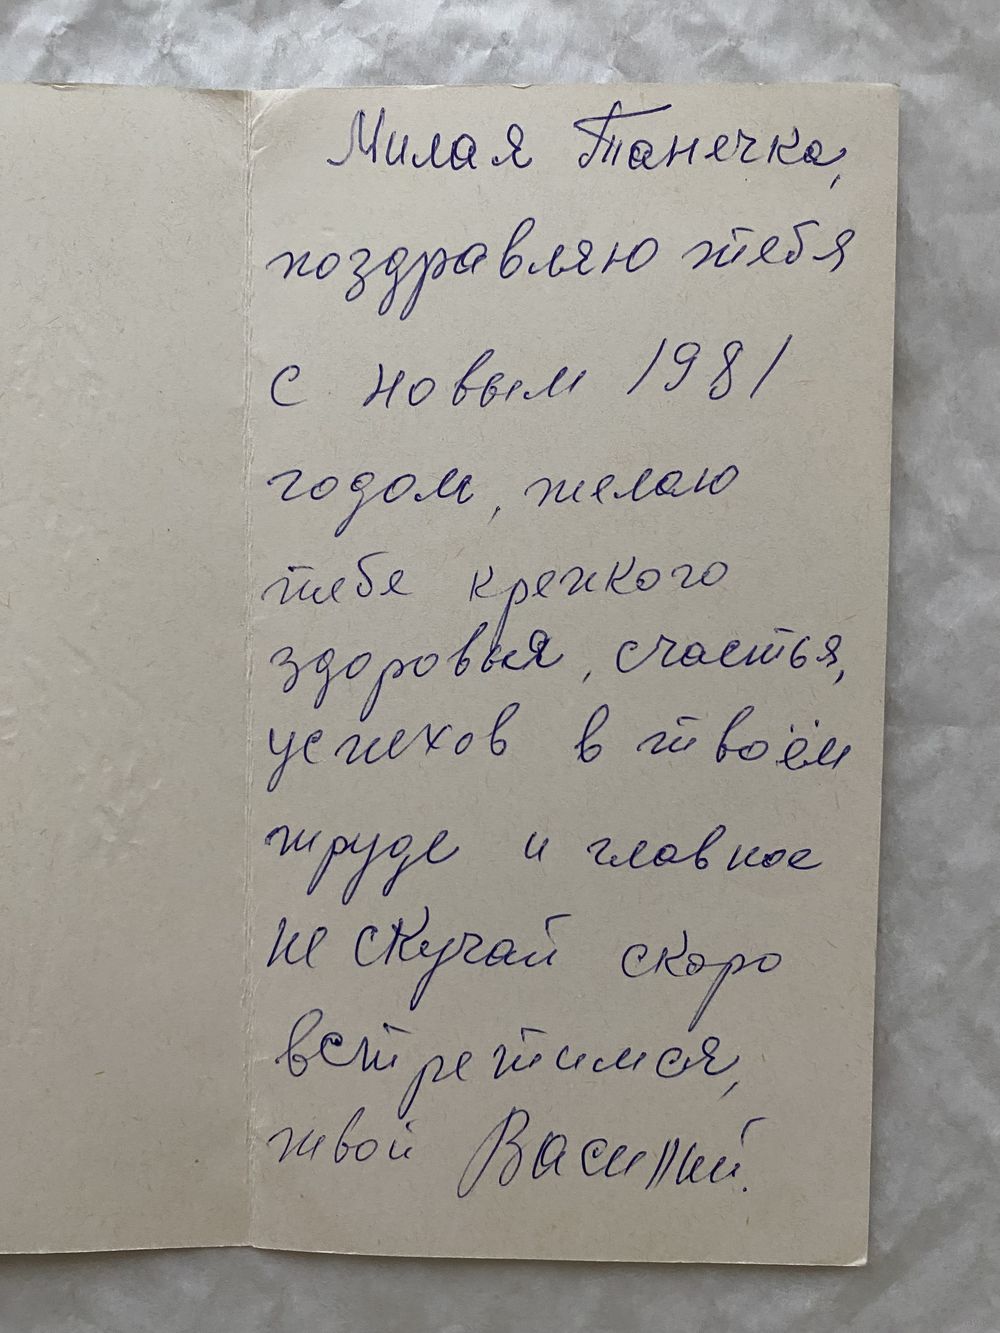 Милая Танечка,
поздравляю тебя
с новым 1981
годом, желаю
тебе крепкого
здоровья, счастья,
успехов в твоём
труде и главное
не скучай скоро
встретимся,
твой Василий.